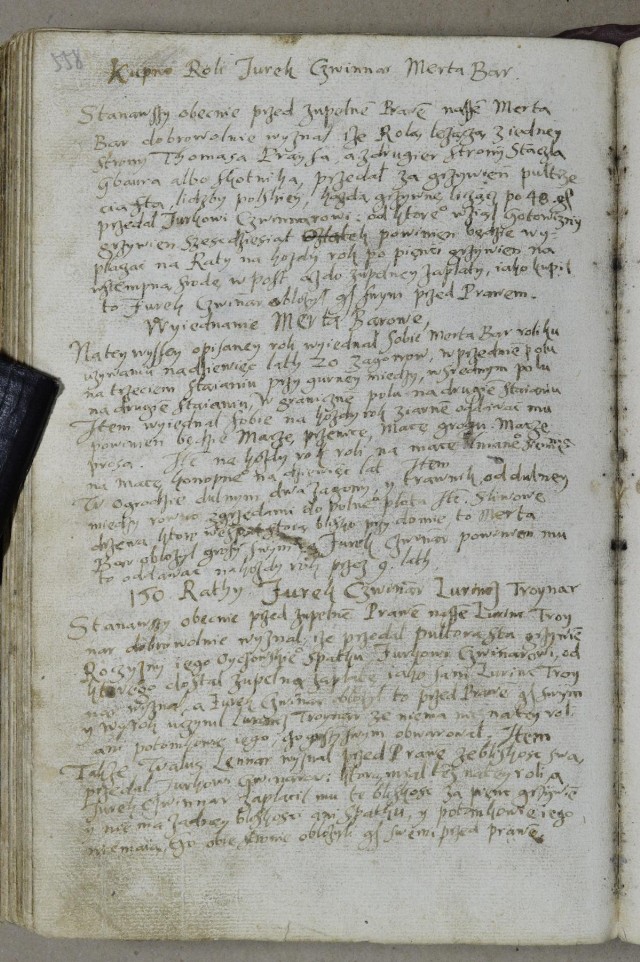 558
Kupno Roli Jurek Czwinnar Merta Bar.
Stanąwszy obecnie przed zupełnē Prawē naszē Merta
Bar dobrowolnie wyznał, iże Rolą leżączą z iedney
strony Thomasa Praysa, a z drugier strony Staczla
Gbaura albo Skotnika, przedał za grzywien pułtrze
cia sta, liczby polskiey, każdą grzywnę licząc po 48 gš
przedał Jurkowi Czwinnarowi: od które° wziął gotowizny
grzywien Sześćdziesiąt powinien będzie wy-
płaczać na Raty na każdy rok po pięci grzywien na
wstempną środę w post, aż do zupełney zapłaty, iako kupił
to Jurek Czwinar obłożył gš swym przed Prawem.
Wyiednanie Merta Barowe
Na tey wyszey opisaney roli wyiednał sobie Merta Bar roli ku
używaniu na dziewięć lath 20 zagonow, w przednie polu
na trzeciem staianiu przy gurney miedzy, w średnym polu
na drugiē staianiu, w graniczne polu na drugiē staianiu
Item wyiednał sobie na każdy rok ziarnē oddawać mu
powinien będzie Macę pszenice, Macę grochu Macę
prosa. Itē na każdy rok roli na macę
na macę konopne na dziewięć lat Item
W ogrodzie dulnym dwa zagony, y trawnik, od dulney
miedzy rowno z grzedami do polne° płota Itē. Sliwowe
drzewa, ktore stoią blisko przy domie, to Merta
Bar obłożył groszē swym Jurek Czwinar powinien mu
to oddawać na każdy rok przez 9. lath.
150 Rathy Jurek Czwinar Lurincz Troynar
Stanąwszy obecnie przed zupełnē Prawē naszē Lurinc Troy
nar dobrowolnie wyznał, iże przedał pułtora sta grzywiē
Roczyzny iego Oyczowskie° spathu Jurkowi Czwinarowi, od
ktorego dostał zupełną zapłatę iako sam Lurinc Troy
nar wyznał, a Jurek Czwinar obłożył to przed Prawē gš swym
y wyrok uczynił Lurincz Troynar że niema nic na tey roli
ani potomkowie iego, groszē swym obwarował. Item
Także Walus Lennar wyznał przed Prawē że bliskość swą
przedał Jurkowi Czwinarowi ktorą miał też na tey roli, a
Jurek Czwinnar zapłacił mu tē bliskość za pięnc grzywiē
y nie ma żadney bliskości ani spathu, y potomkowie iego
niemaią, to obie stronie obłożyli gš swemi przed prawē